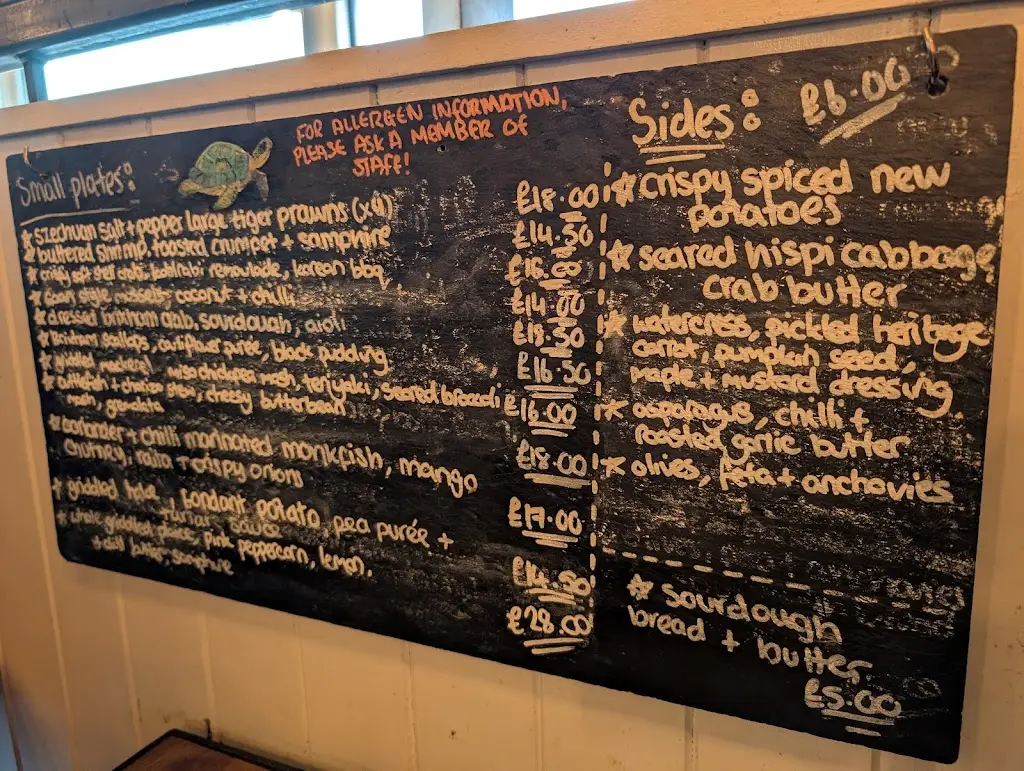 FOR ALLERGEN INFORMATION,
PLEASE ASK A MEMBER OF
STAFF!
Small plates:
szechuan salt + pepper large tiger prawns (x4) £18.00
buttered shrimp, toasted crumpet + samphire £14.50
crispy soft shell crab, kohlrabi remoulade, korean bbq £16.00
style mussels, coconut + chilli £14.00
dressed brixham crab, sourdough, aioli £18.50
brixham scallops, cauliflower purée, black pudding £16.50
griddled mackerel, miso chicken mash, teriyaki, seared broccoli £16.00
cuttlefish + chorizo stew, cheesy butterbean
mash, gremolata £18.00
coriander + chilli marinated monkfish, mango
chutney, raita + crispy onions £17.00
griddled hake, fondant potato, pea purée +
tartar sauce £14.50
whole griddled plaice, pink peppercorn, lemon,
+ dill butter, samphire £28.00
Sides: £6.00
crispy spiced new
potatoes
seared hispi cabbage
crab butter
watercress, pickled heritage
carrot, pumpkin seed,
maple + mustard dressing
asparagus, chilli +
roasted garlic butter
olives, feta + anchovies
sourdough
bread + butter
£5.00